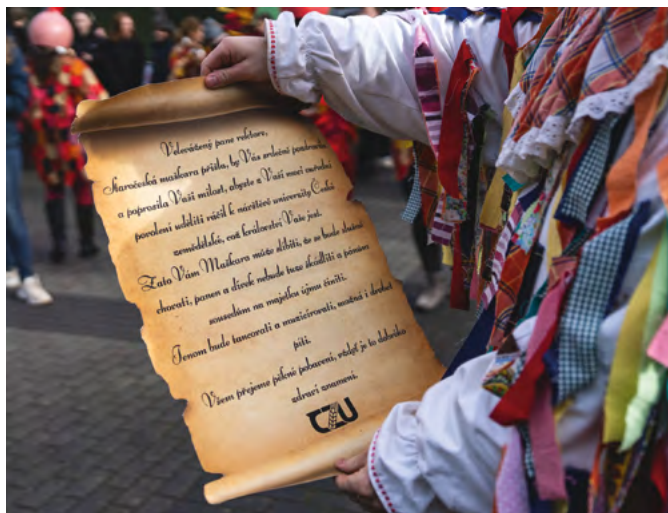 Velevážený pane rektore,
Staročeská maškara přišla, by Vás srdečně pozdravila
a poprosila Vaši milost, abyste z Vaší moci úřední
povolení uděliti ráčil k návštěvě university České
zemědělské, což království Vaše jest.
Zato Vám Maškara může slíbiti, že se bude slušně
chovati, panen a dívek nebude tuze škádliti a pánům
sousedům na majetku újmu činiti.
Jenom bude tancovati a muzicírovati, možná i drobet
píti.
Všem přejeme pěkné pobavení, vždyť je to dobrého
zdraví znamení.
ČZU